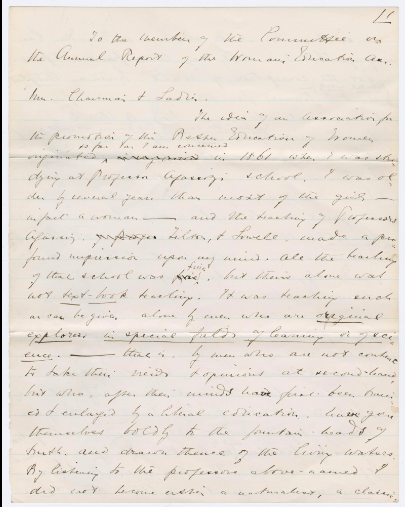 To the members of the Committee on
the Annual Report of the Woman's Education Ass.
Mr. Chairman & Ladies.
The idea of an association for
the promotion of the Better Education of Women
so far as I am concerned
originated, in when I was stu-
dying at Professor Agassiz's school. I was ol-
der by several years than most of the girls —
in fact a woman — and the teaching of Professors
Agassiz, Felton, & Lowell, made a pro-
found impression upon my mind. All the teaching
of that school was but theirs alone was
not text-book teaching. It was teaching such
as can be given alone by men who are original
explorers in special fields of learning or of sci-
ence. — that is, by men who are not content
to take their creeds & opinions at second-hand,
but who, after their minds have first been train-
ed & enlarged by a liberal education, have gone
themselves boldly to the fountain-heads of
truth, and drawn thence of the living waters.
By listening to the professors above-named I
did not become either a naturalist, a classi-